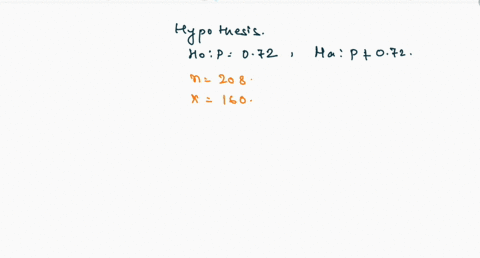 Hypothesis.
Ho: P = 0.72 , Ha: P ≠ 0.72.
n = 208.
x = 160.